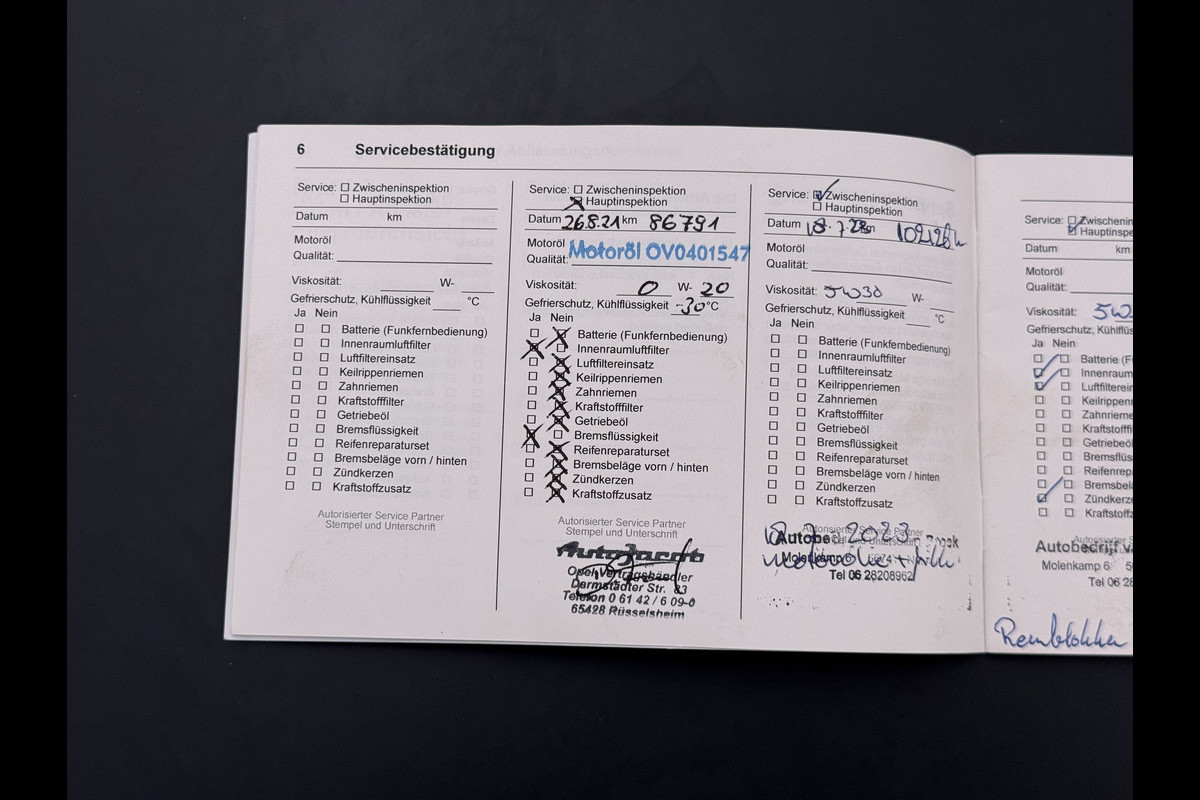 6 Servicebestätigung
Service: Zwischeninspektion
Hauptinspektion
Datum km
Motoröl
Qualität:
Viskosität: W-
Gefrierschutz, Kühlflüssigkeit °C
Ja Nein
Batterie (Funkfernbedienung)
Innenraumluftfilter
Luftfiltereinsatz
Keilrippenriemen
Zahnriemen
Kraftstofffilter
Getriebeöl
Bremsflüssigkeit
Reifenreparaturset
Bremsbeläge vorn / hinten
Zündkerzen
Kraftstoffzusatz
Autorisierter Service Partner
Stempel und Unterschrift
Service: Zwischeninspektion
Hauptinspektion
Datum 26.8.21 km 86791
Motoröl Motoröl OV0401547
Qualität:
Viskosität: 0 W- 20
Gefrierschutz, Kühlflüssigkeit -30 °C
Ja Nein
Batterie (Funkfernbedienung)
Innenraumluftfilter
Luftfiltereinsatz
Keilrippenriemen
Zahnriemen
Kraftstofffilter
Getriebeöl
Bremsflüssigkeit
Reifenreparaturset
Bremsbeläge vorn / hinten
Zündkerzen
Kraftstoffzusatz
Autorisierter Service Partner
Stempel und Unterschrift
AutoJacob
Opel Vertragshändler
Darmstädter Str. 83
Telefon 0 61 42 / 6 09-0
65428 Rüsselsheim
Service: Zwischeninspektion
Hauptinspektion
Datum km
Motoröl
Qualität:
Viskosität: 5W30 W-
Gefrierschutz, Kühlflüssigkeit °C
Ja Nein
Batterie (Funkfernbedienung)
Innenraumluftfilter
Luftfiltereinsatz
Keilrippenriemen
Zahnriemen
Kraftstofffilter
Getriebeöl
Bremsflüssigkeit
Reifenreparaturset
Bremsbeläge vorn / hinten
Zündkerzen
Kraftstoffzusatz
Autorisierter Service Partner
2023
Molenkamp 6
Tel 06 28208962
Service: Zwischenin
Hauptinspe
Datum km
Motoröl
Qualität:
Viskosität: 5W
Gefrierschutz, Kühlflüs
Ja Nein
Batterie (F
Innenraum
Luftfilterein
Keilrippenr
Zahnrieme
Kraftstofffi
Getriebeöl
Bremsflüs
Reifenrep
Bremsbel
Zündkerz
Kraftstoff
Autobedrijf v
Molenkamp 6
Tel 06 28
Remblokken